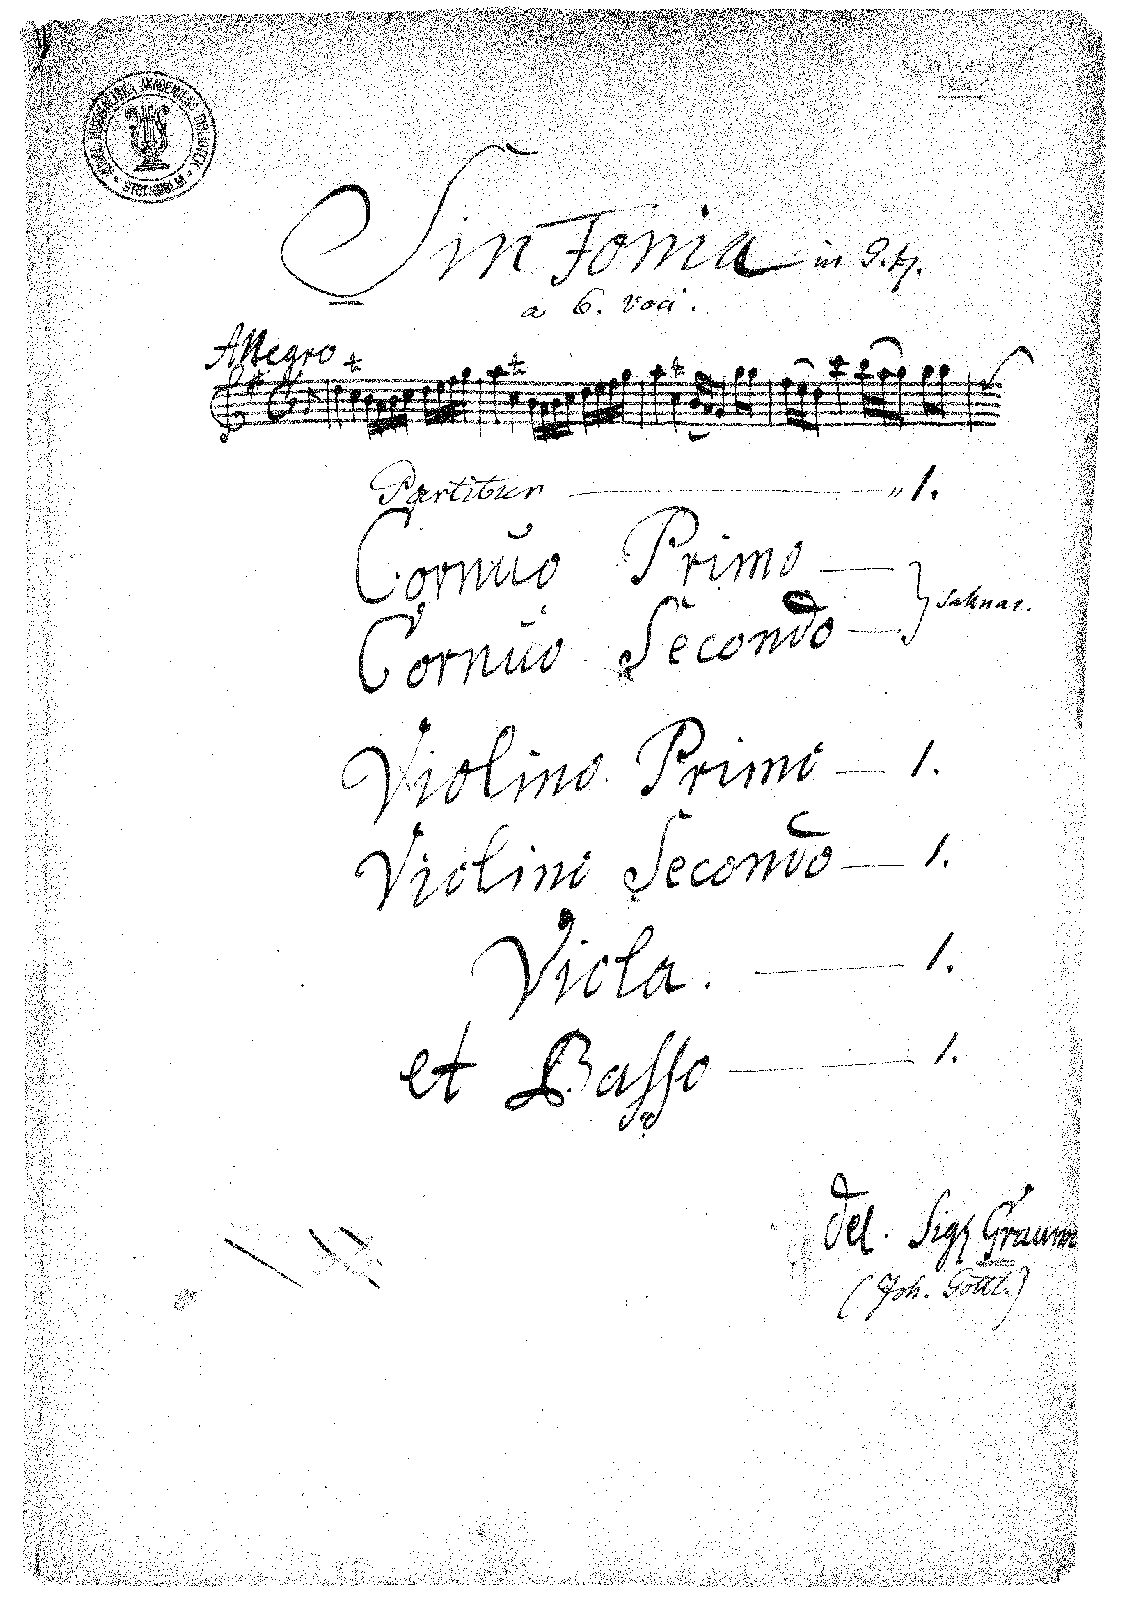 Sinfonia in G.
a 6. voci.
Allegro
Partitur 1.
Cornuo Primo
Cornuo Secondo
Violino Primo 1.
Violino Secondo 1.
Viola. 1.
et Basso 1.
del. Sigr Graun
(Joh. Gottl.)